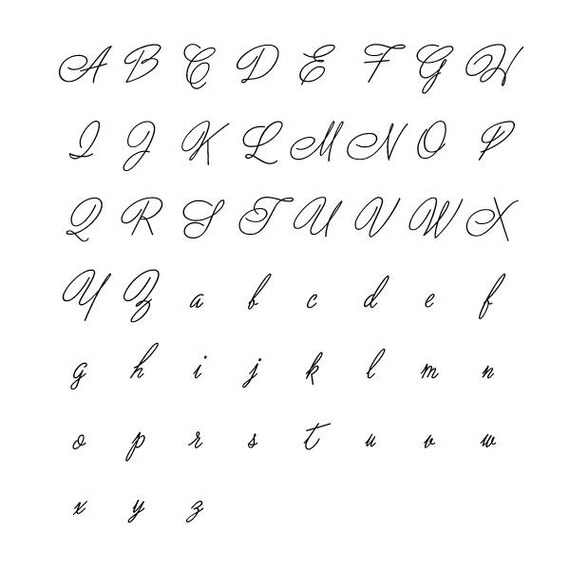 A B C D E F G H
I J K L M N O P
Q R S T U V W X
Y Z a b c d e f
g h i j k l m n
o p r s t u v w
x y z